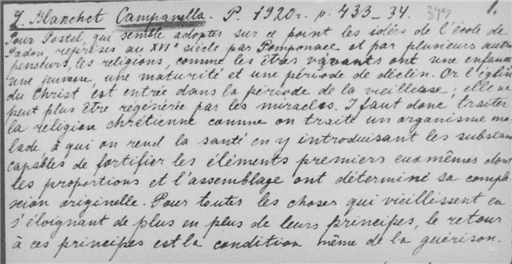 J. Blanchet Campanella. P. 1920. p. 433-34.
Pour Postel, qui semble adopter sur ce point les idées de l'école de
Padon reprises au XVIe siècle par Pomponace et par plusieurs autr
penseurs, les religions, comme les êtres vivants ont une enfanc
une jeunesse, une maturité et une période de déclin. Or l'églis
du Christ est entrée dans la période de la vieillesse; elle ne
peut plus être régénérée par les miracles. I faut donc traiter
la religion chrétienne comme on traite un organisme ma-
lade à qui on rend la santé en y introduisant les substan
capables de fortifier les éléments premiers eux mêmes dont
les proportions et l'assemblage ont déterminé sa comple
xion originelle. Pour toutes les choses qui vieillissent en
s'éloignant de plus en plus de leurs principes, le retour
à ces principes est la condition même de la guérison.